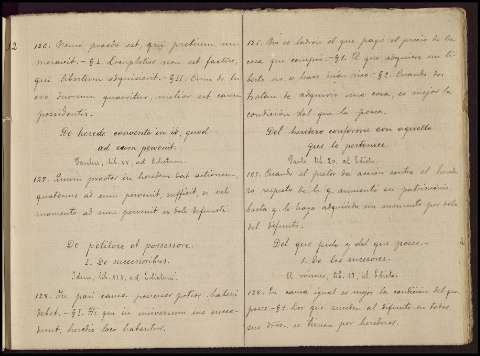 12
126. Nemo praedo est, qui pretium nu-
meravit.-§1. Locupletior non est factus,
qui libertum adquisierit.-§II. Cum de lu-
cro duorum quaeritur, melior est causa
possidentis.
De herede convento in id, quod
ad eum pervenit.
lib. XX, ad Edictum.
127. Quum praetor in heredem dat actionem,
quatenus ad eum pervenit, sufficit, si vel
momento ad eum pervenit ex dolo defuncti.
De petitore et possessore.
1. De successoribus.
Idem, lib. XIX, ad Edictum.
128. In pari causa possessor potior haberi
debet.-§I. Hi qui in universum ius succe-
dunt, heredis loco habentur.
126. No es ladron el que pagó el precio de la
cosa que compró.-§1. El que adquiere un li-
berto no se hace más rico.-§2. Cuando se
trata de adquirir una cosa, es mejor la
condición del que la posea.
Del heredero conforme con aquello
que le pertenece.
Paulo lib. 20, al Edicto.
127. Cuando el pretor da acción contra el herede-
ro respecto de lo q. aumentó su patrimonio,
basta q. lo haya adquirido un momento por dolo
del difunto.
Del que pide y del que posee.
1. De los sucesores.
El mismo, lib. 19, al Edicto.
128. En causa igual es mejor la condición del que
posee.-§1. Los que suceden al difunto en todos
sus dros. se tienen por herederos.